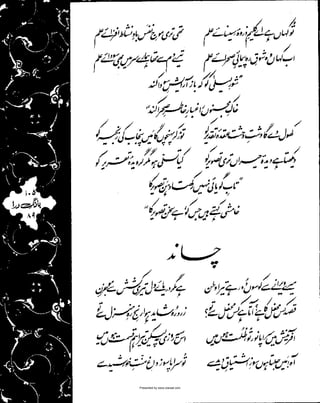 تو کہاں ہے اے کلیمِ ذروۂ سینائے علم تھی تری موجِ نفس بادِ نشاط افزائے علم
اب کہاں وہ شوقِ رہ پیمائیِ صحرائے علم تیرے دم سے تھا ہمارے سر میں بھی سودائے علم
”شورِ لیلیٰ کو کہ باز آرایشِ سودا کند
خاکِ مجنوں را غبارِ خاطرِ صحرا کند“
کھول دے گا دشتِ وحشت عقدۂ تقدیر کو توڑ کر پہنچوں گا میں پنجاب کی زنجیر کو
دیکھتا ہے دیدۂ حیراں تری تصویر کو کیا تسلی ہو مگر گرویدۂ تقریر کو
”تابِ گویائی نہیں رکھتا دہن تصویر کا
خامشی کہتے ہیں جس کو، ہے سخن تصویر کا“
چاند
میرے ویرانے سے کوسوں دور ہے تیرا وطن ہے مگر دریائے دل تیری کشش سے موجزن
قصد کس محفل کا ہے؟ آتا ہے کس محفل سے تو؟ زرد رو شاید ہوا رنجِ رہِ منزل سے تو
آفرینش میں سراپا نور تو، ظلمت ہوں میں اس سیہ روزی پہ لیکن تیرا ہم قسمت ہوں میں
آہ! میں جلتا ہوں سوزِ اشتیاقِ دید سے تو سراپا سوز داغِ منتِ خورشید سے
۱۰۵
بانگِ درا
۸۹
Presented by www.iqbalai.com